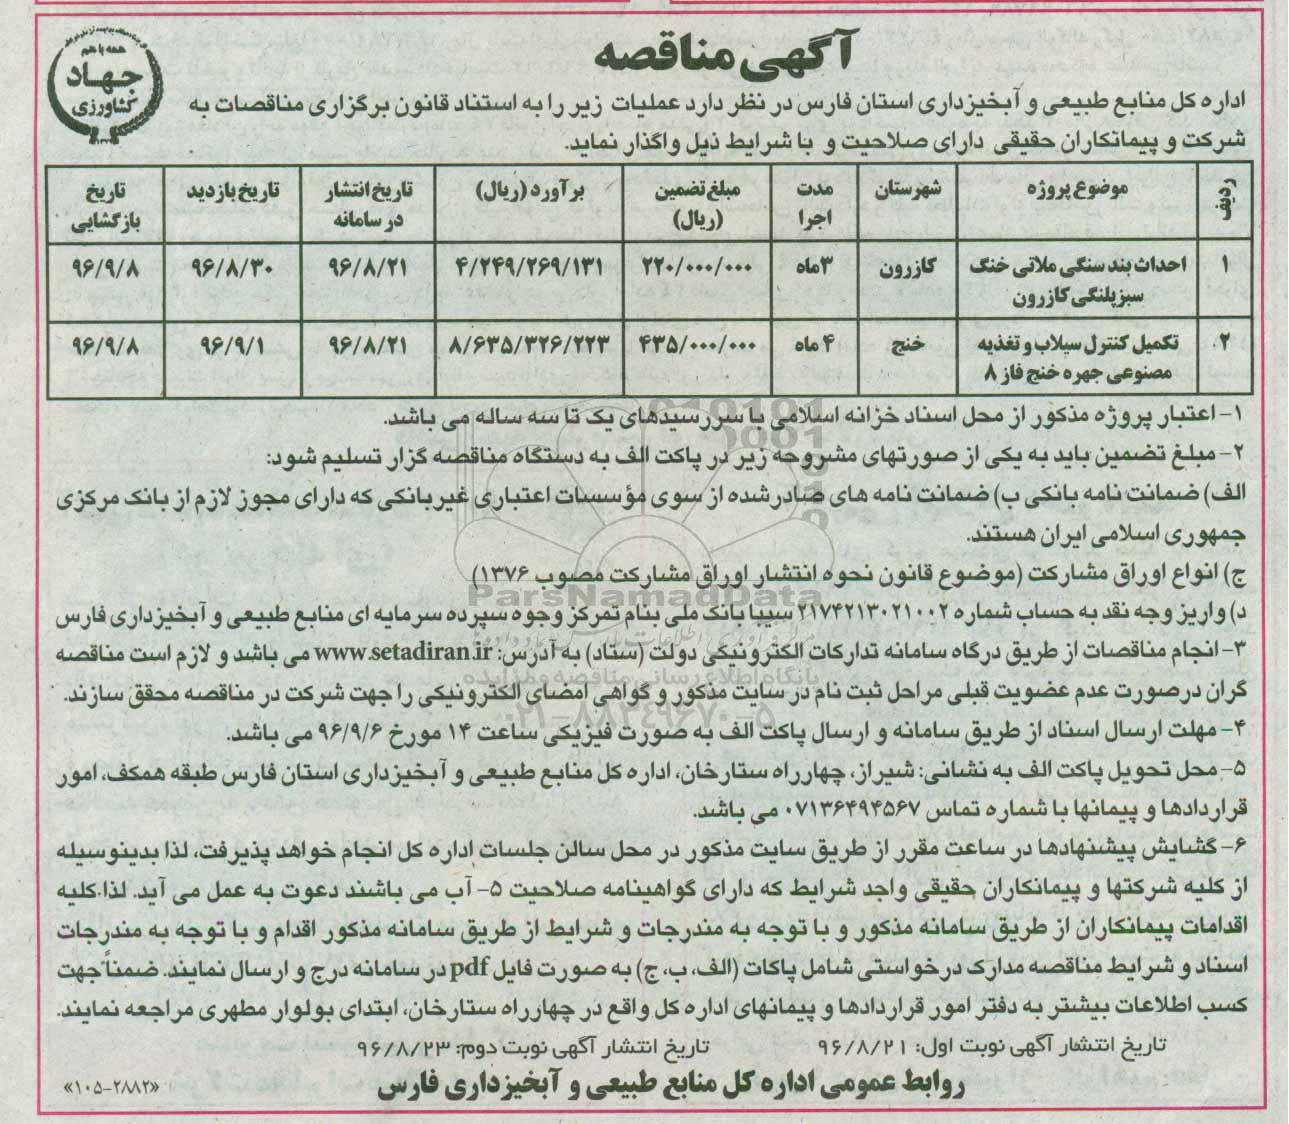 همه با هم
جهاد
کشاورزی
آگهی مناقصه
اداره کل منابع طبیعی و آبخیزداری استان فارس در نظر دارد عملیات زیر را به استناد قانون برگزاری مناقصات به
شرکت و پیمانکاران حقیقی دارای صلاحیت و با شرایط ذیل واگذار نماید.
ردیف موضوع پروژه شهرستان مدت اجرا مبلغ تضمین (ریال) برآورد (ریال) تاریخ انتشار در سامانه تاریخ بازدید تاریخ بازگشایی
۱ احداث بند سنگی ملاتی خنگ سبز پلنگی کازرون کازرون ۳ماه ۲۲۰/۰۰۰/۰۰۰ ۴/۲۴۹/۲۶۹/۱۳۱ ۹۶/۸/۲۱ ۹۶/۸/۳۰ ۹۶/۹/۸
۲ تکمیل کنترل سیلاب و تغذیه مصنوعی جهره خنج فاز ۸ خنج ۴ ماه ۴۳۵/۰۰۰/۰۰۰ ۸/۶۳۵/۳۲۶/۲۲۳ ۹۶/۸/۲۱ ۹۶/۹/۱ ۹۶/۹/۸
۱- اعتبار پروژه مذکور از محل اسناد خزانه اسلامی با سررسیدهای یک تا سه ساله می باشد.
۲- مبلغ تضمین باید به یکی از صورتهای مشروحه زیر در پاکت الف به دستگاه مناقصه گزار تسلیم شود:
الف) ضمانت نامه بانکی ب) ضمانت نامه های صادر شده از سوی مؤسسات اعتباری غیربانکی که دارای مجوز لازم از بانک مرکزی
جمهوری اسلامی ایران هستند.
ج) انواع اوراق مشارکت (موضوع قانون نحوه انتشار اوراق مشارکت مصوب ۱۳۷۶)
د) واریز وجه نقد به حساب شماره ۲۱۷۴۲۱۳۰۲۱۰۰۲ سیبا بانک ملی بنام تمرکز وجوه سپرده سرمایه ای منابع طبیعی و آبخیزداری فارس
۳- انجام مناقصات از طریق درگاه سامانه تدارکات الکترونیکی دولت (ستاد) به آدرس: www.setadiran.ir می باشد و لازم است مناقصه
گران درصورت عدم عضویت قبلی مراحل ثبت نام در سایت مذکور و گواهی امضای الکترونیکی را جهت شرکت در مناقصه محقق سازند.
۴- مهلت ارسال اسناد از طریق سامانه و ارسال پاکت الف به صورت فیزیکی ساعت ۱۴ مورخ ۹۶/۹/۶ می باشد.
۵- محل تحویل پاکت الف به نشانی: شیراز، چهارراه ستارخان، اداره کل منابع طبیعی و آبخیزداری استان فارس طبقه همکف، امور
قراردادها و پیمانها با شماره تماس ۰۷۱۳۶۴۹۴۵۶۷ می باشد.
۶- گشایش پیشنهادها در ساعت مقرر از طریق سایت مذکور در محل سالن جلسات اداره کل انجام خواهد پذیرفت، لذا بدینوسیله
از کلیه شرکتها و پیمانکاران حقیقی واجد شرایط که دارای گواهینامه صلاحیت ۵- آب می باشند دعوت به عمل می آید. لذا کلیه
اقدامات پیمانکاران از طریق سامانه مذکور و با توجه به مندرجات و شرایط از طریق سامانه مذکور اقدام و با توجه به مندرجات
اسناد و شرایط مناقصه مدارک درخواستی شامل پاکات (الف، ب، ج) به صورت فایل pdf در سامانه درج و ارسال نمایند. ضمناً جهت
کسب اطلاعات بیشتر به دفتر امور قراردادها و پیمانهای اداره کل واقع در چهارراه ستارخان، ابتدای بولوار مطهری مراجعه نمایند.
تاریخ انتشار آگهی نوبت اول: ۹۶/۸/۲۱ تاریخ انتشار آگهی نوبت دوم: ۹۶/۸/۲۳
روابط عمومی اداره کل منابع طبیعی و آبخیزداری فارس
«۱۰۵-۲۸۸۲»
ParsNamadData
پایگاه اطلاع رسانی مناقصه و مزایده
۰۲۱-۸۸۳۴۹۶۷۰-۵